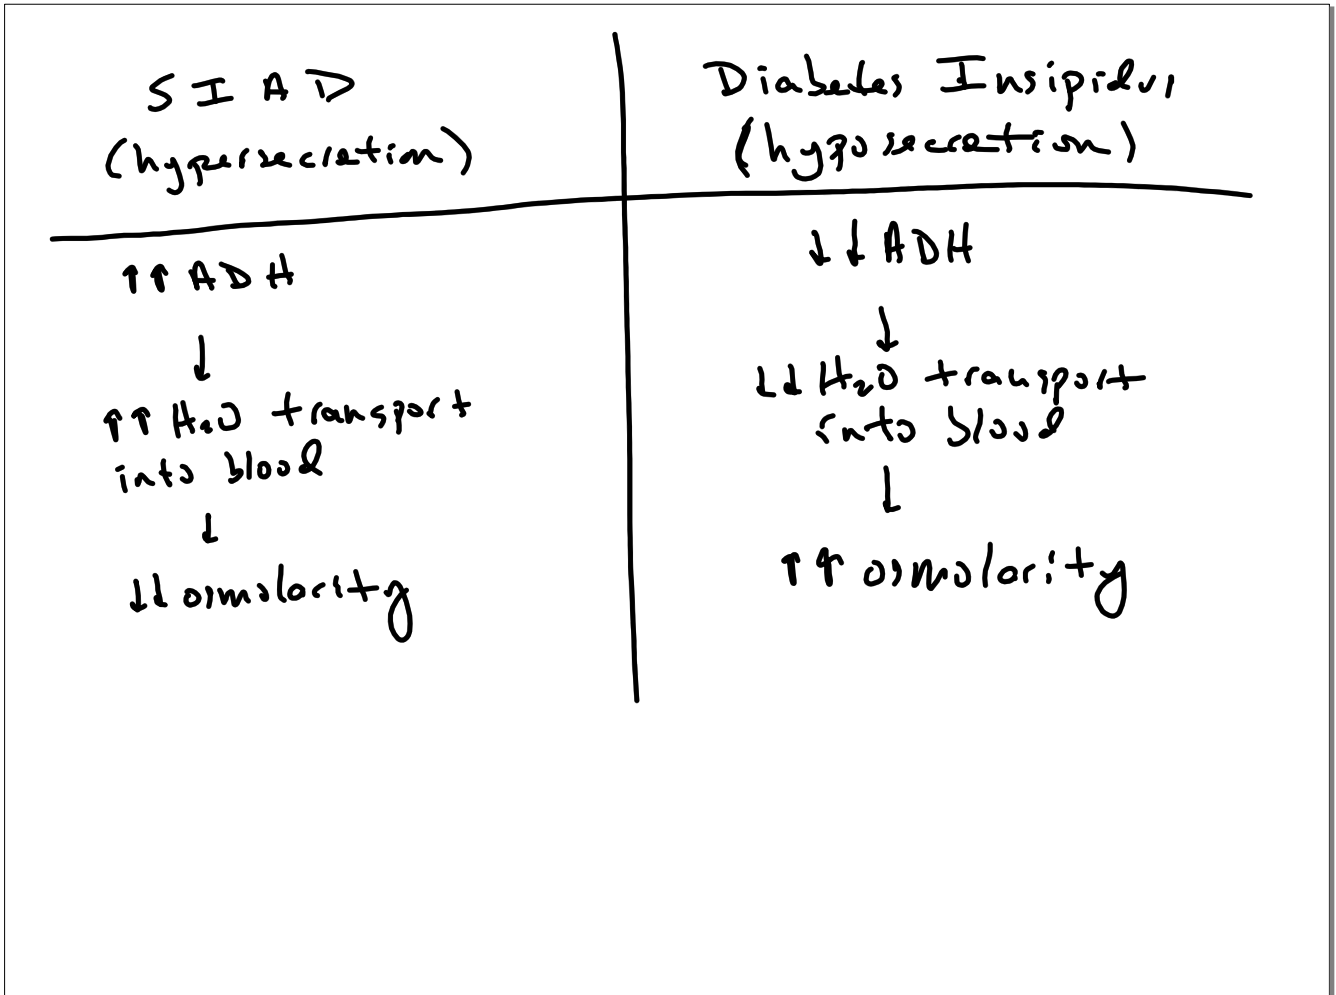 SIAD
(hypersecretion)
↑↑ ADH
↓
↑↑ H₂O transport
into blood
↓
↓↓ osmolarity
Diabetes Insipidus
(hyposecretion)
↓↓ ADH
↓
↓↓ H₂O transport
into blood
↓
↑↑ osmolarity